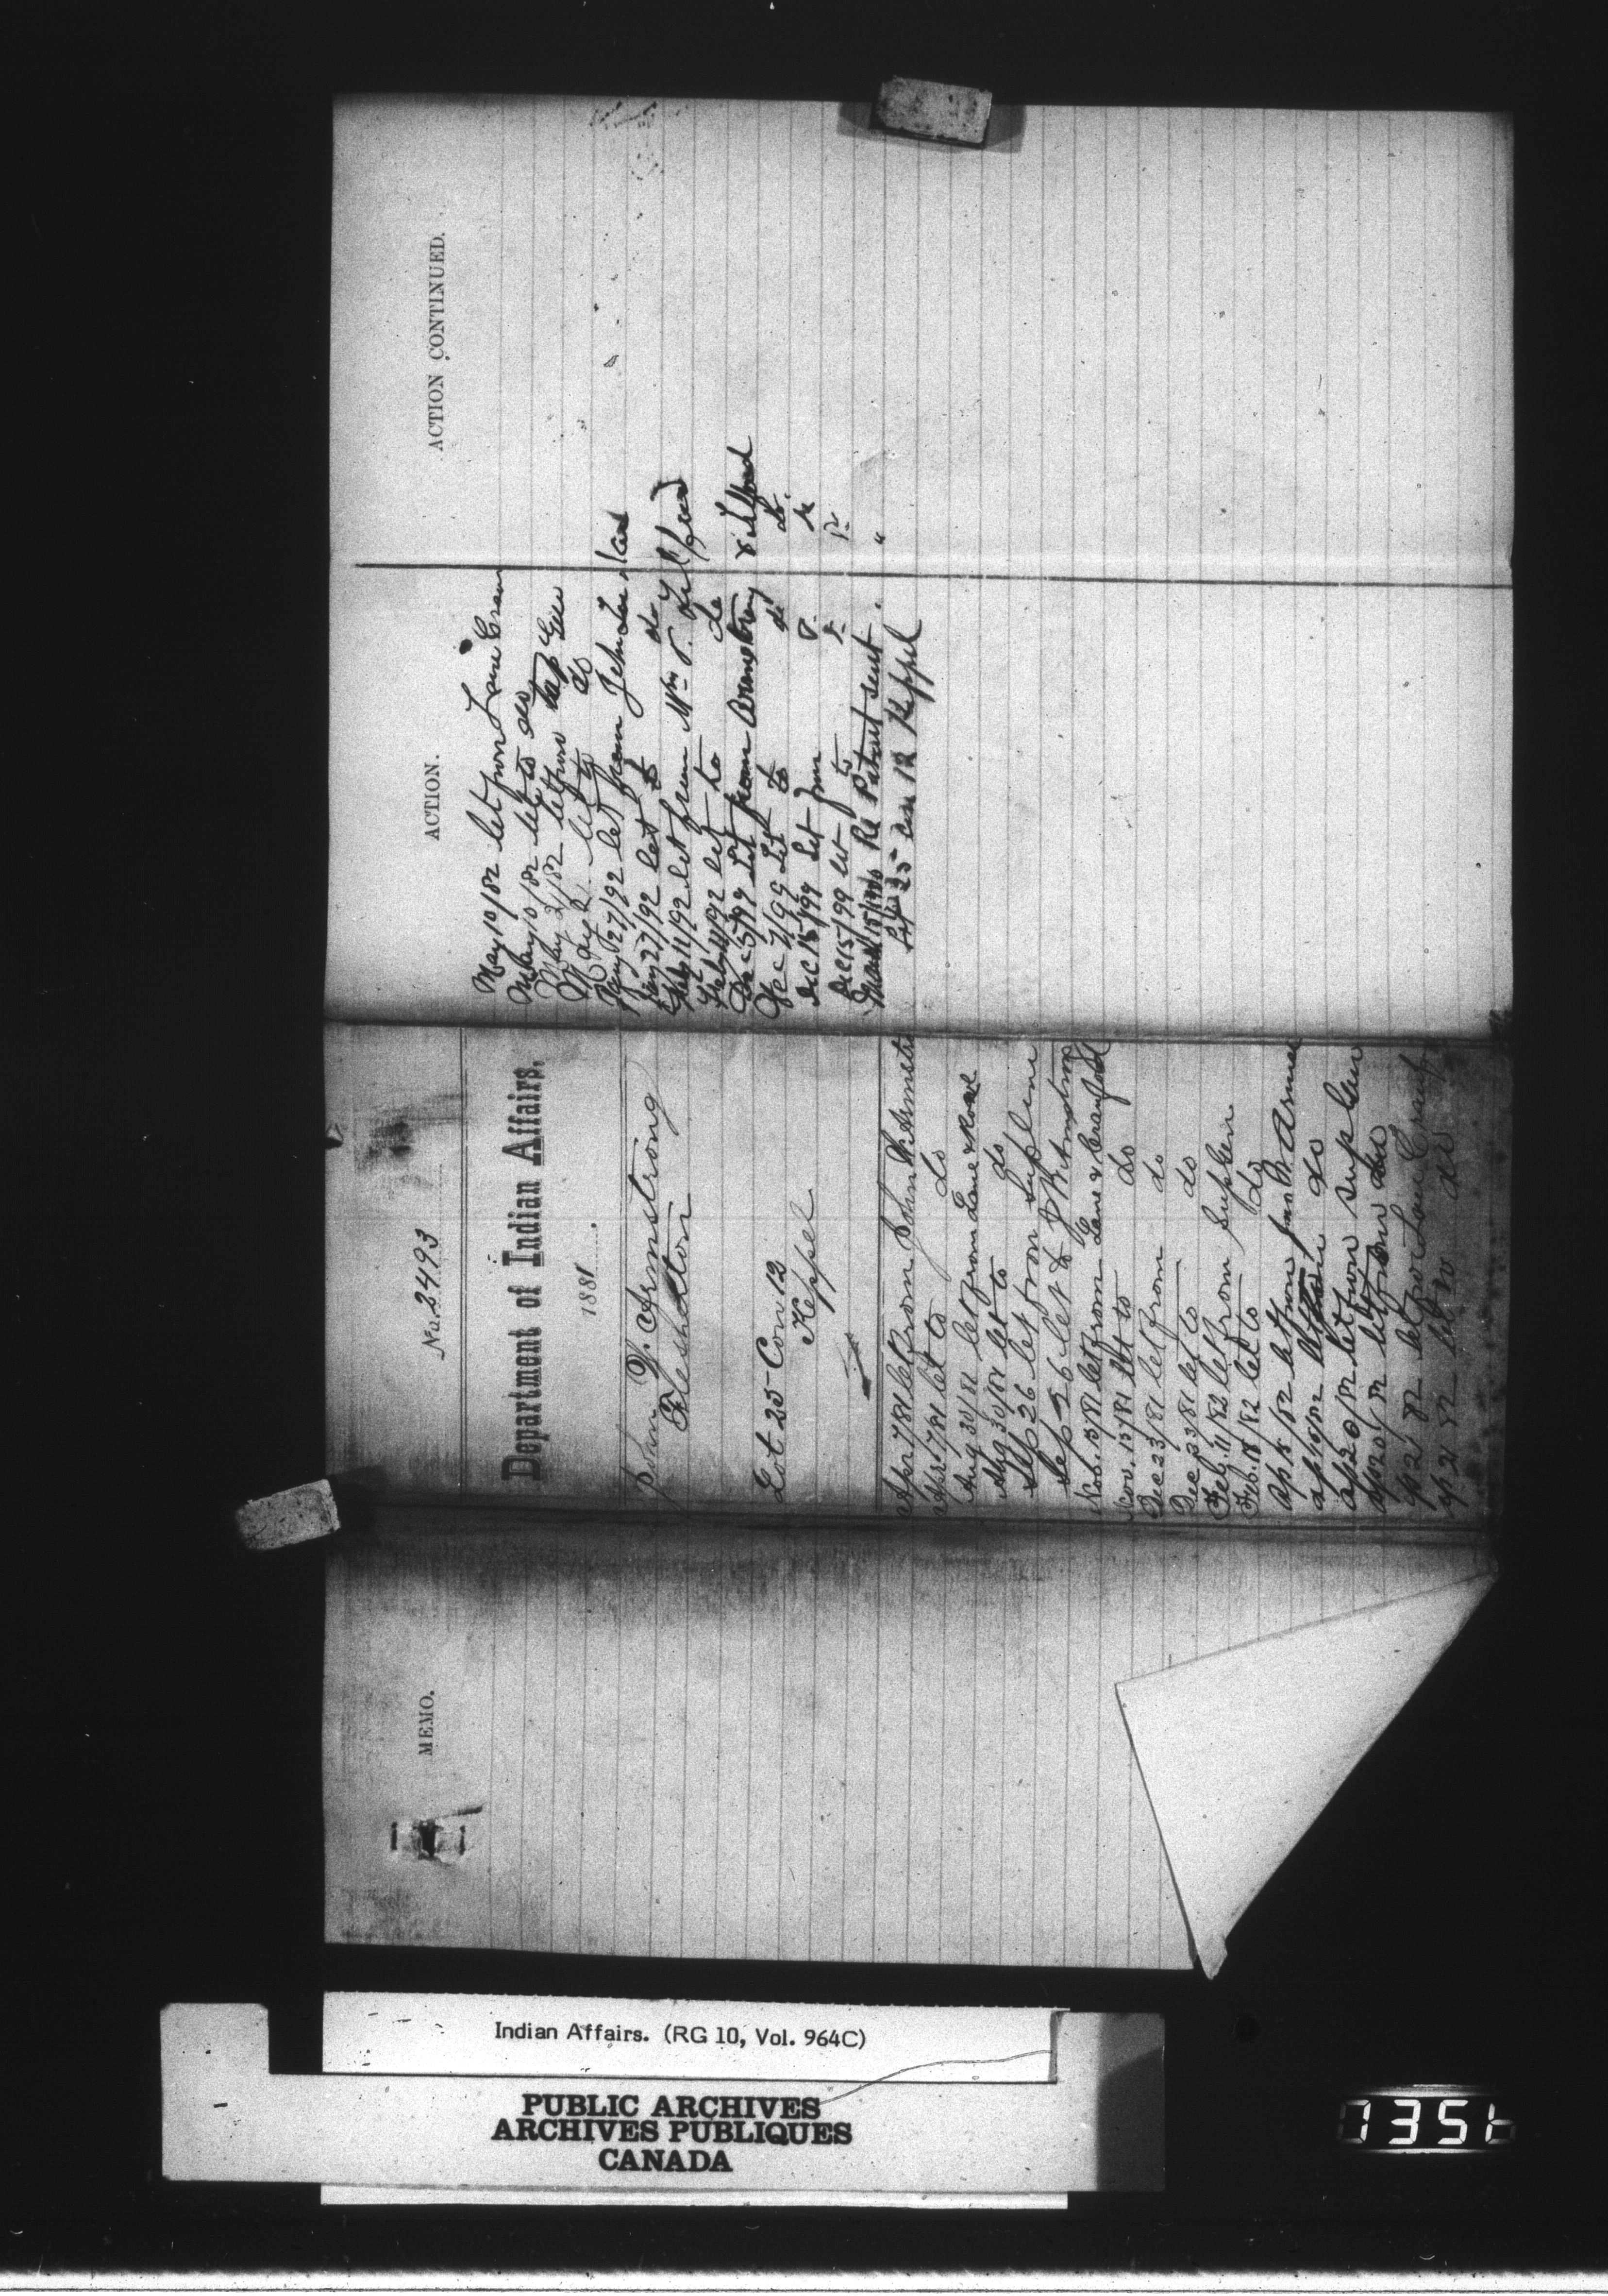 MEMO.
No. 2493
Department of Indian Affairs.
1881.
John W. Armstrong
Flesherton
Lot 25 Con 12
Keppel
Apr 7/81 let from John W. Armstro
Apr 7/81 let to do
Aug 30/81 let from Lane & Rowe
Aug 30/81 let to do
Sep 26 let from Sup Lume
Sep 26 let to J W Armstrong
Nov. 15/81 let from Lane & Crawford
Nov. 15/81 let to do
Dec 23/81 let from do
Dec 23/81 let to do
Feb. 11/82 let from Sup Gen
Feb. 18/82 let to do
ap 15/82 let from Jno W Arms
ap 15/82 let do
ap 20/82 let from Sup Gen
ap 20/82 let
ap 21 82 let from Lane Crawf
ap 21 82 let to do
ACTION.
May 10/82 let from Lane Craw
May 10/82 let to do
May 2/82 let from Sup Gen
May 2 let to do
Jany 27/92 let from John
Jany 27/92 let to do
Feby 11/92 let from Wm P. Telford
Feby 11/92 let to do
Dec 5/99 Let from Armstrong & Telford
Dec 7/99 Let to do do.
Dec 15/99 Let from
Dec 15/99 let to
Re Patent sent. "
Lot 25 con 12 Keppel
ACTION CONTINUED.
Indian Affairs. (RG 10, Vol. 964C)
PUBLIC ARCHIVES
ARCHIVES PUBLIQUES
CANADA